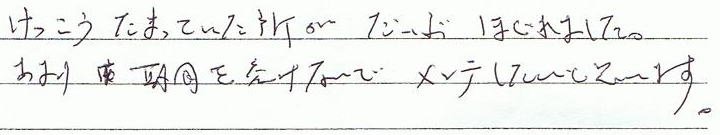 けっこう たまっていた所が だいぶ ほぐれました。
あまり 間を空けないで メンテしたいと思います。